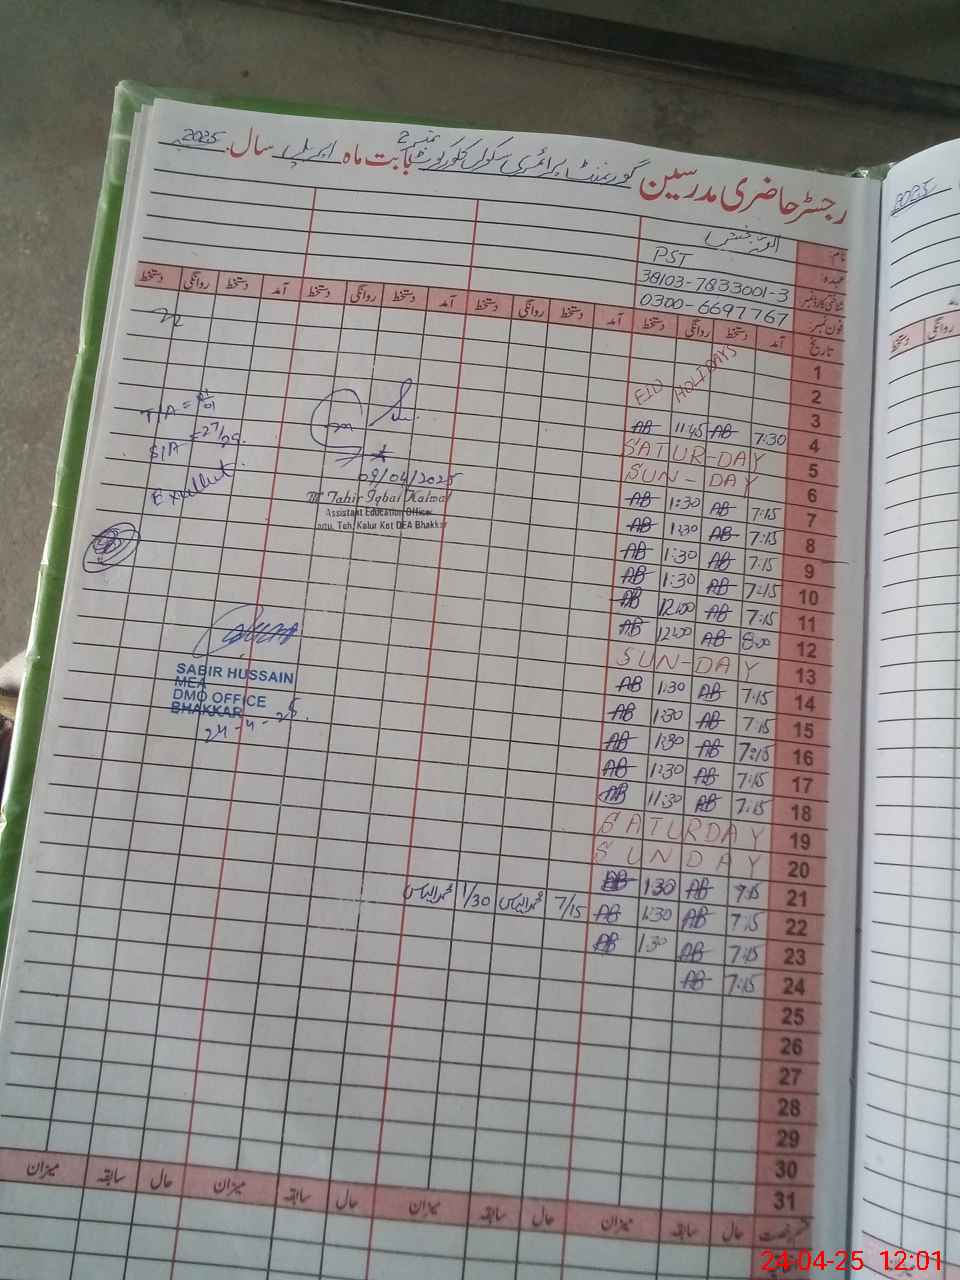 رجسٹر حاضری مدرسین گورنمنٹ پرائمری سکول نمبر 2 بابت ماہ اپریل سال 2025
2025
نام:
عہدہ: PST
شناختی کارڈ نمبر 38103-7833001-3
فون نمبر: 0300-6697767
تاریخ آمد دستخط روانگی دستخط آمد دستخط روانگی دستخط آمد دستخط روانگی دستخط آمد دستخط روانگی دستخط
دستخط روانگی
1
2 EID HOLIDAYS
3
4 7:30 AB 11:45 AB
5 SATUR-DAY
6 SUN-DAY
7 7:15 AB 1:30 AB
8 7:15 AB 1:30 AB
9 7:15 AB 1:30 AB
10 7:15 AB 1:30 AB
11 7:15 AB 12:00 AB
12 8:00 AB 12:00 AB
13 SUN-DAY
14 7:15 AB 1:30 AB
15 7:15 AB 1:30 AB
16 7:15 AB 1:30 AB
17 7:15 AB 1:30 AB
18 7:15 AB 11:30 AB
19 SATURDAY
20 SUNDAY
21 7:15 AB 1:30 AB
22 7:15 AB 1:30 AB 7/15 محمد الیاس 1/30 محمد الیاس
23 7:15 AB 1:30 AB
24 7:15 AB
25
26
27
28
29
30
31
T/A = 01/01
S/A = 27/25
Excellent
09/04/2025
M Tahir Iqbal Kalmal
Assistant Education Officer
Teh. Kalur Kot DEA Bhakkar
SABIR HUSSAIN
MEA
DMO OFFICE
BHAKKAR
24-4-25.
حال سابقہ میزان حال سابقہ میزان حال سابقہ میزان حال سابقہ میزان
24-04-25 12:01